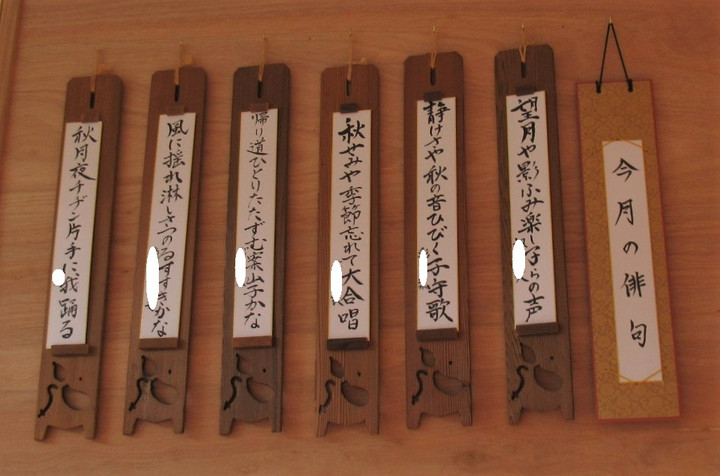 今月の俳句
望月や影ふみ楽し子らの声
静けさや秋の音ひびく子守歌
秋せみや季節忘れて大合唱
帰り道ひとりたたずむ案山子かな
風に揺れ淋しさつのるすすきかな
秋月夜チヂン片手に我踊る